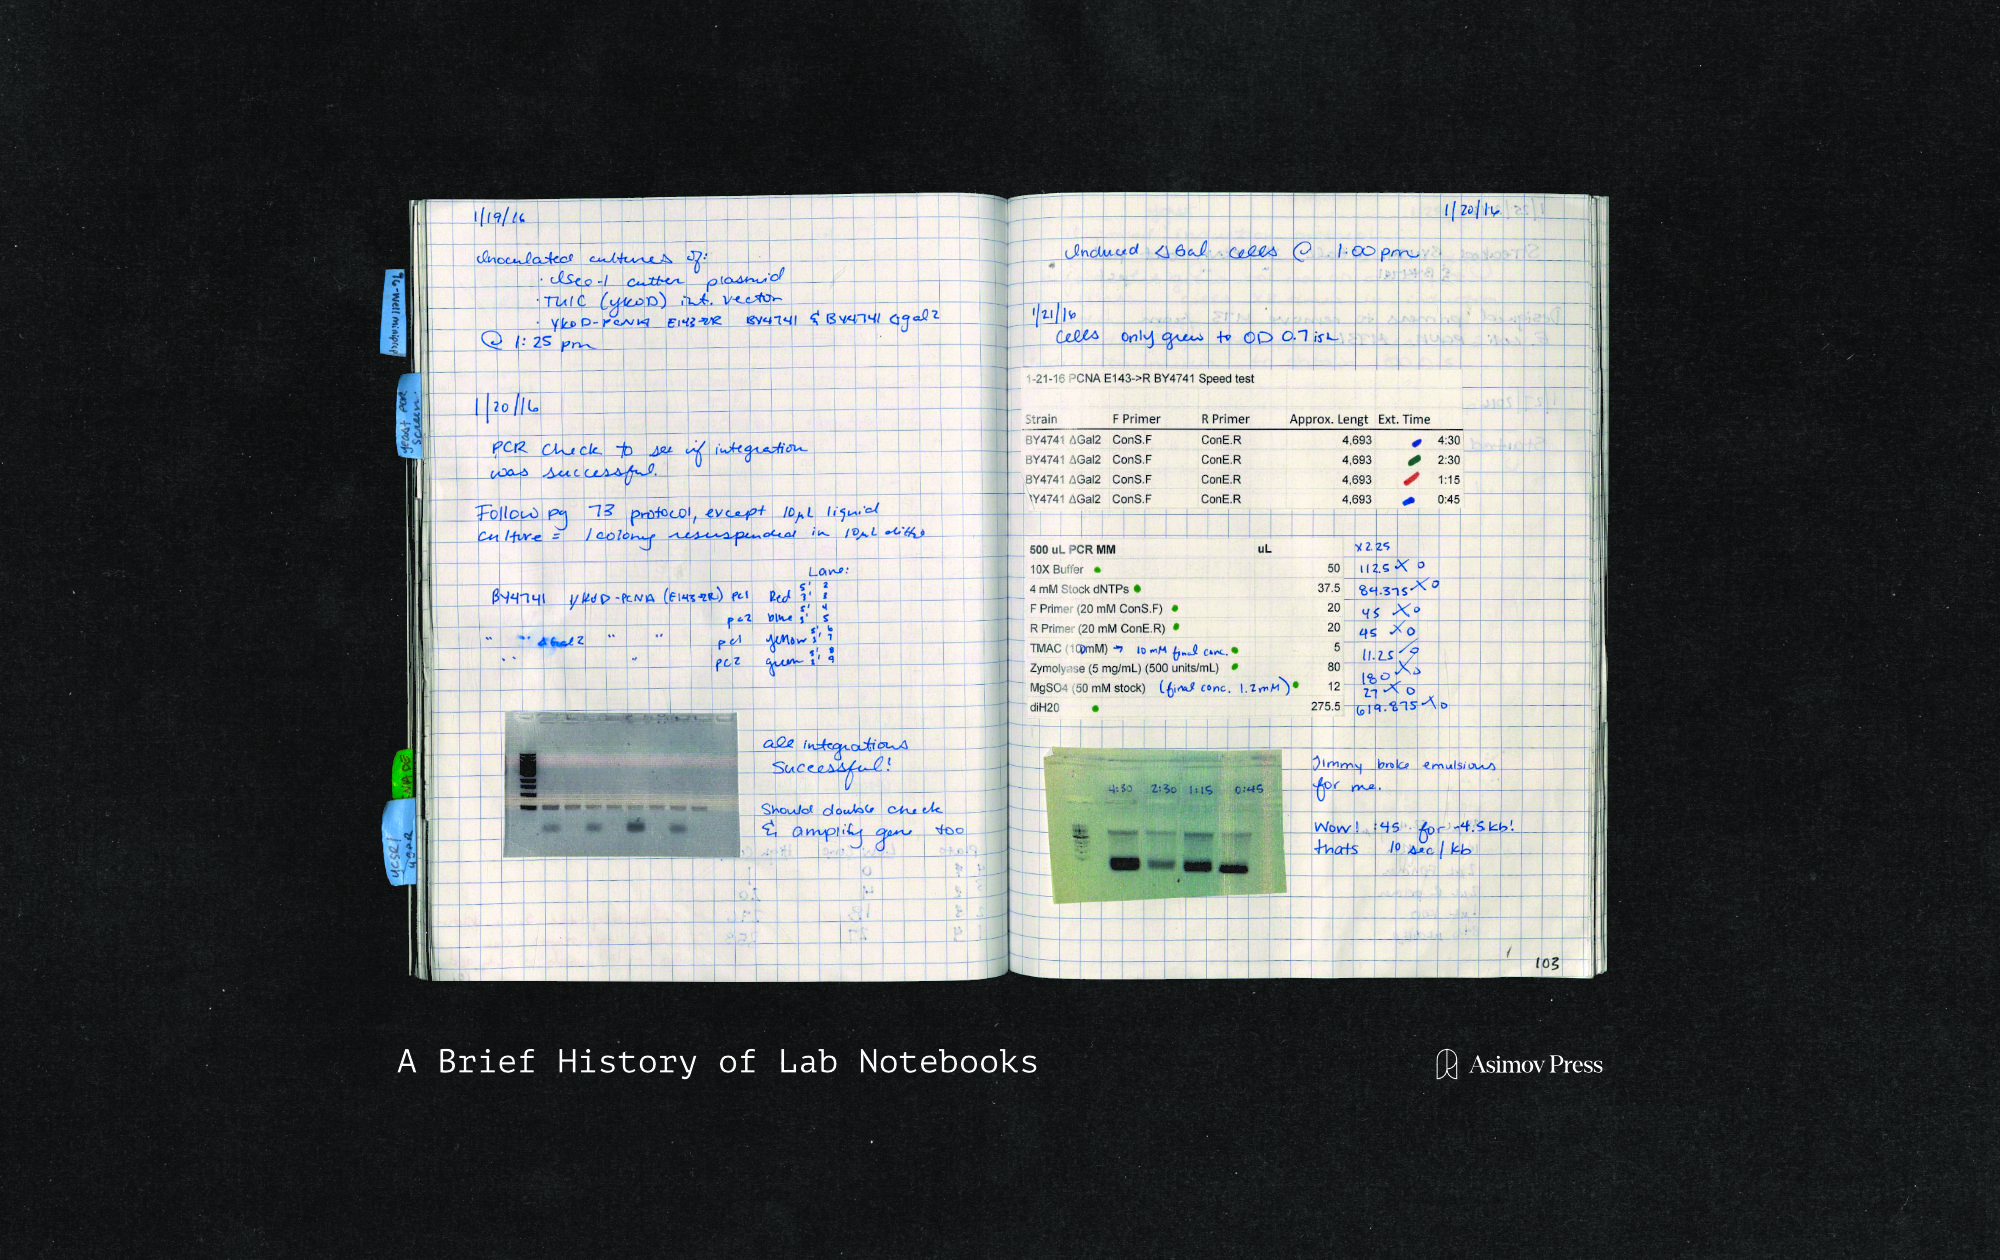 1/19/16
Inoculated cultures of:
· ISce-1 cutter plasmid
· (yKOD) int. vector
· YKOD-PCNA E143→R BY4741 & BY4741 Δgal2
@ 1:25 pm
1/20/16
PCR check to see if integration
was successful.
Follow pg 73 protocol, except 10µL liquid
culture = 1 colony resuspended in 10µL
Lane:
BY4741 YKOD-PCNA (E143→R) pc1 Red 5' 2
3' 3
pc2 blue 5' 4
3' 5
" " ΔGal2 " " pc1 yellow 5' 6
3' 7
" " " pc2 green 5' 8
3' 9
all integrations
Successful!
Should double check
& amplify gene too
yeast PCR
screen
1/20/16
Induced ΔGal cells @ 1:00 pm
1/21/16
cells only grew to OD 0.7ish
1-21-16 PCNA E143->R BY4741 Speed test
Strain F Primer R Primer Approx. Lengt Ext. Time
BY4741 ΔGal2 ConS.F ConE.R 4,693 4:30
BY4741 ΔGal2 ConS.F ConE.R 4,693 2:30
BY4741 ΔGal2 ConS.F ConE.R 4,693 1:15
Y4741 ΔGal2 ConS.F ConE.R 4,693 0:45
500 uL PCR MM uL x2.25
10X Buffer 50 112.5 X o
4 mM Stock dNTPs 37.5 84.375 X o
F Primer (20 mM ConS.F) 20 45 X o
R Primer (20 mM ConE.R) 20 45 X o
TMAC (100mM) → 10 mM final conc. 5 11.25 X o
Zymolyase (5 mg/mL) (500 units/mL) 80 180 X o
MgSO4 (50 mM stock) (final conc. 1.2mM) 12 27 X o
diH20 275.5 619.875 X o
4:30 2:30 1:15 0:45
Jimmy broke emulsions
for me.
Wow! :45 for ~4.5kb!
thats 10 sec/kb
103
A Brief History of Lab Notebooks
Asimov Press